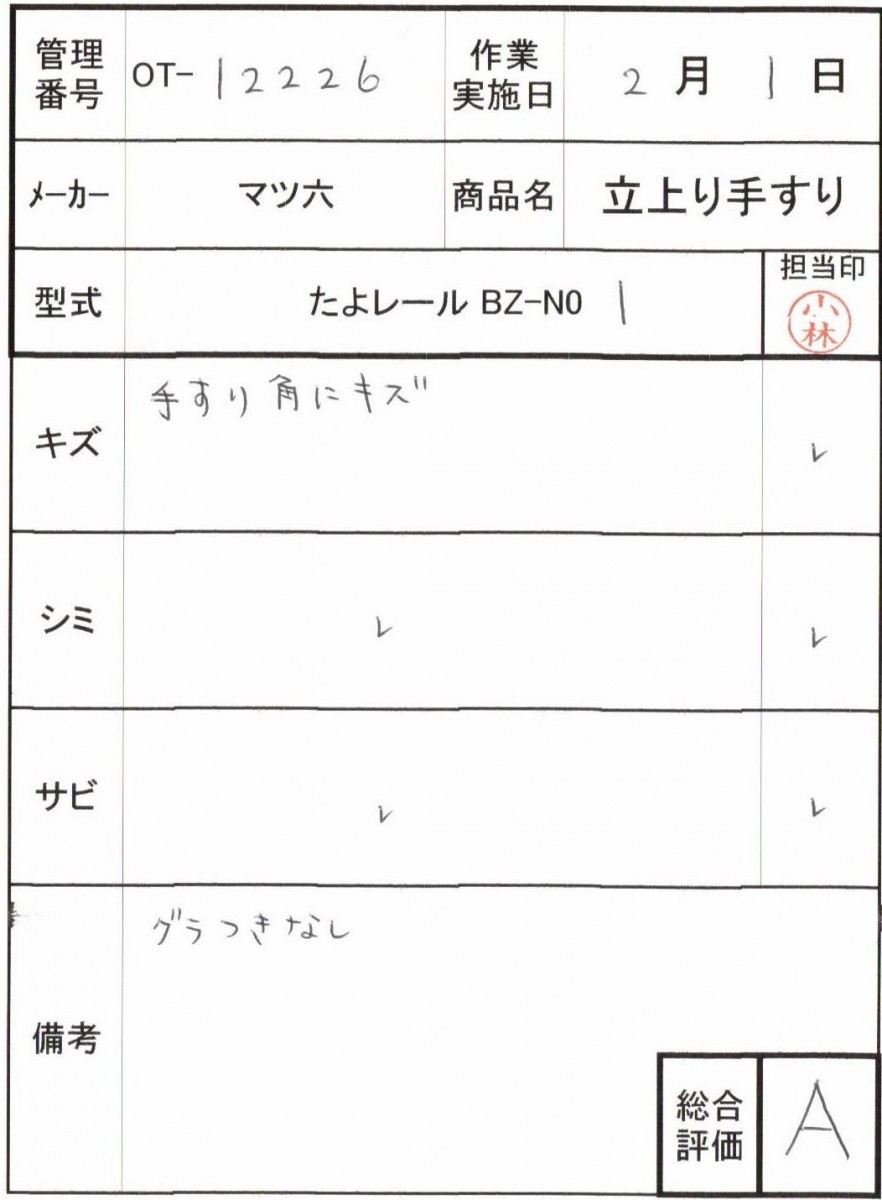 管理番号 OT-12226 作業実施日 2月1日
メーカー マツ六 商品名 立上り手すり
型式 たよレール BZ-N0 1 担当印 小林
キズ 手すり角にキズ レ
シミ レ レ
サビ レ レ
備考 グラつきなし
総合評価 A